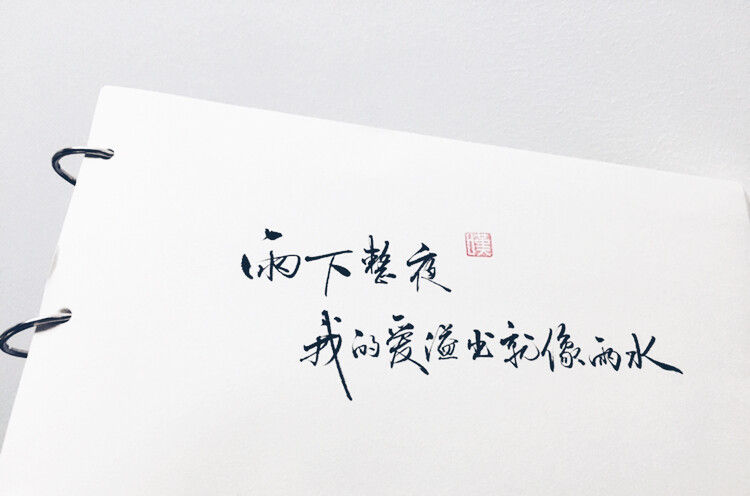 雨下整夜
我的爱溢出就像雨水
漢